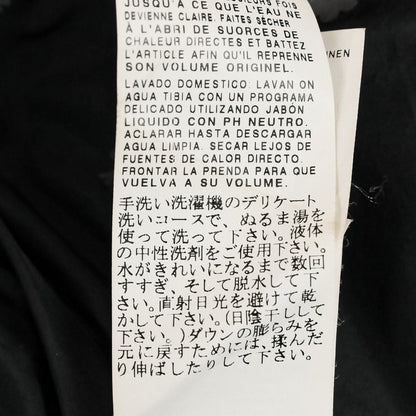 JUSQU'À CE QUE L'EAU NE
DEVIENNE CLAIRE. FAITES SÈCHER
À L'ABRI DE SUORCES DE
CHALEUR DIRECTES ET BATTEZ
L'ARTICLE AFIN QU'IL REPRENNE
SON VOLUME ORIGINEL.
LAVADO DOMESTICO: LAVAN ON
AGUA TIBIA CON UN PROGRAMA
DELICADO UTILIZANDO JABÓN
LIQUIDO CON PH NEUTRO.
ACLARAR HASTA DESCARGAR
AGUA LIMPIA. SECAR LEJOS DE
FUENTES DE CALOR DIRECTO.
FRONTAR LA PRENDA PARA QUE
VUELVA A SU VOLUME.
手洗い洗濯機のデリケート
洗いコースで、ぬるま湯を
使って洗って下さい。液体
の中性洗剤をご使用下さい。
水がきれいになるまで数回
すすぎ、そして脱水して下
さい。直射日光を避けて乾
かして下さい。(日陰干しして
下さい。)ダウンの膨らみを
元に戻すためには、揉んだ
り伸ばしたりして下さい。